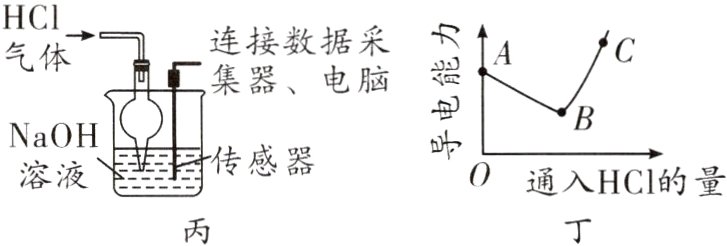 HCl
气体
连接数据采
集器、电脑
NaOH
溶液
传感器
丙
导电能力
A
B
C
O
通入HCl的量
丁